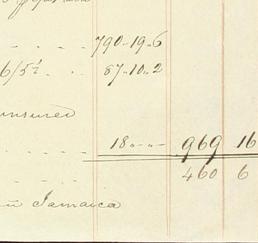 790-19-6
6/5½ 87-10-2
insured
18 - - 969 16
460 6
in Jamaica